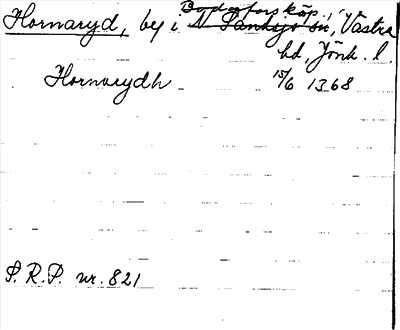 Bodafors köp.,
Hornaryd, by i N Sandsjö sn, Västra
hd, Jönk. l.
Hornarydh 15/6 1368
S.R.P. nr. 821